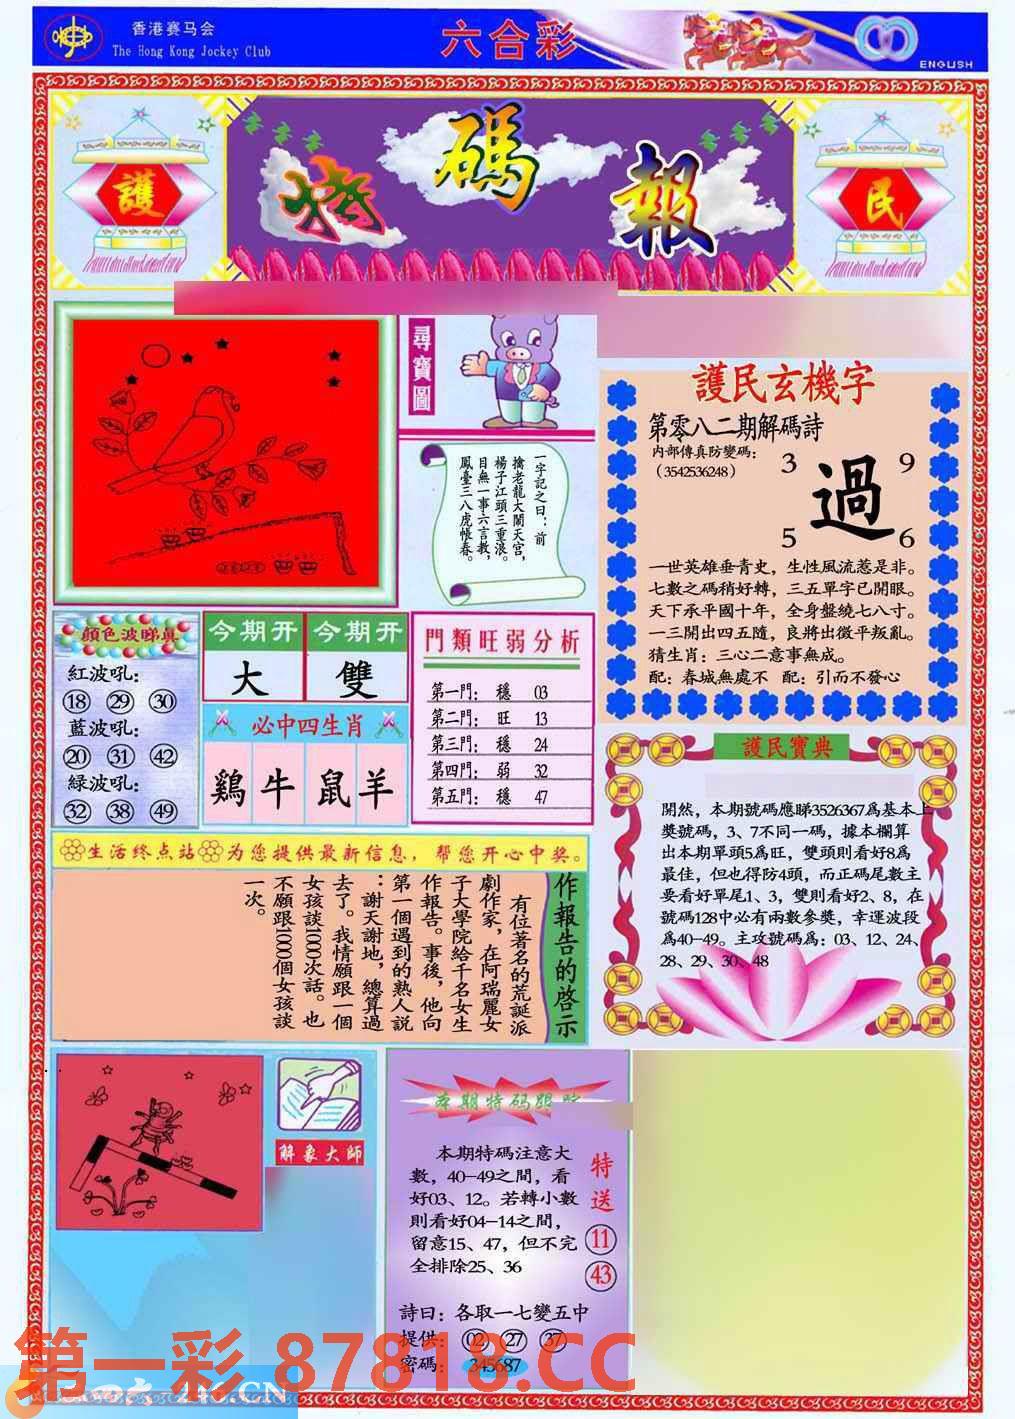 香港赛马会
The Hong Kong Jockey Club
六合彩
ENGLISH
護
特碼報
民
尋寶圖
一字記之日：前
擒老龍大鬧天宮，
楊子江頭三重浪。
目無一事六言教，
鳳臺三八虎帳春。
護民玄機字
第零八二期解碼詩
内部傳真防變碼：
（3542536248）
3 9
過
5 6
一世英雄垂青史，生性風流惹是非。
七數之碼稍好轉，三五單字已開眼。
天下承平國十年，全身盤繞七八寸。
一三開出四五隨，良將出徵平叛亂。
猜生肖：三心二意事無成。
配：春城無處不 配：引而不發心
顔色波睇真
紅波吼：
18 29 30
藍波吼：
20 31 42
緑波吼：
32 38 49
今期开 今期开
大 雙
必中四生肖
鷄 牛 鼠 羊
門類旺弱分析
第一門： 穩 03
第二門： 旺 13
第三門： 穩 24
第四門： 弱 32
第五門： 穩 47
護民寶典
開然，本期號碼應睇3526367爲基本上
獎號碼，3、7不同一碼，據本欄算
出本期單頭5爲旺，雙頭則看好8爲
最佳，但也得防4頭，而正碼尾數主
要看好單尾1、3，雙則看好2、8，在
號碼128中必有兩數參獎，幸運波段
爲40-49。主攻號碼爲：03、12、24、
28、29、30、48
生活终点站 为您提供最新信息，帮您开心中奖。
作報告的啓示
有位著名的荒誕派
劇作家，在阿瑞麗女
子大學院給千名女生
作報告。事後，他向
第一個遇到的熟人説
：謝天謝地，總算過
去了。我情願跟一個
女孩談1000次話。也
不願跟1000個女孩談
一次。
解象大師
本期特码跟踪
本期特碼注意大
數，40-49之間，看
好03、12。若轉小數
則看好04-14之間，
留意15、47，但不完
全排除25、36
特送
11
43
詩曰：各取一七變五中
提供： 02 27 37
密碼： 345687
第一彩 87818.CC